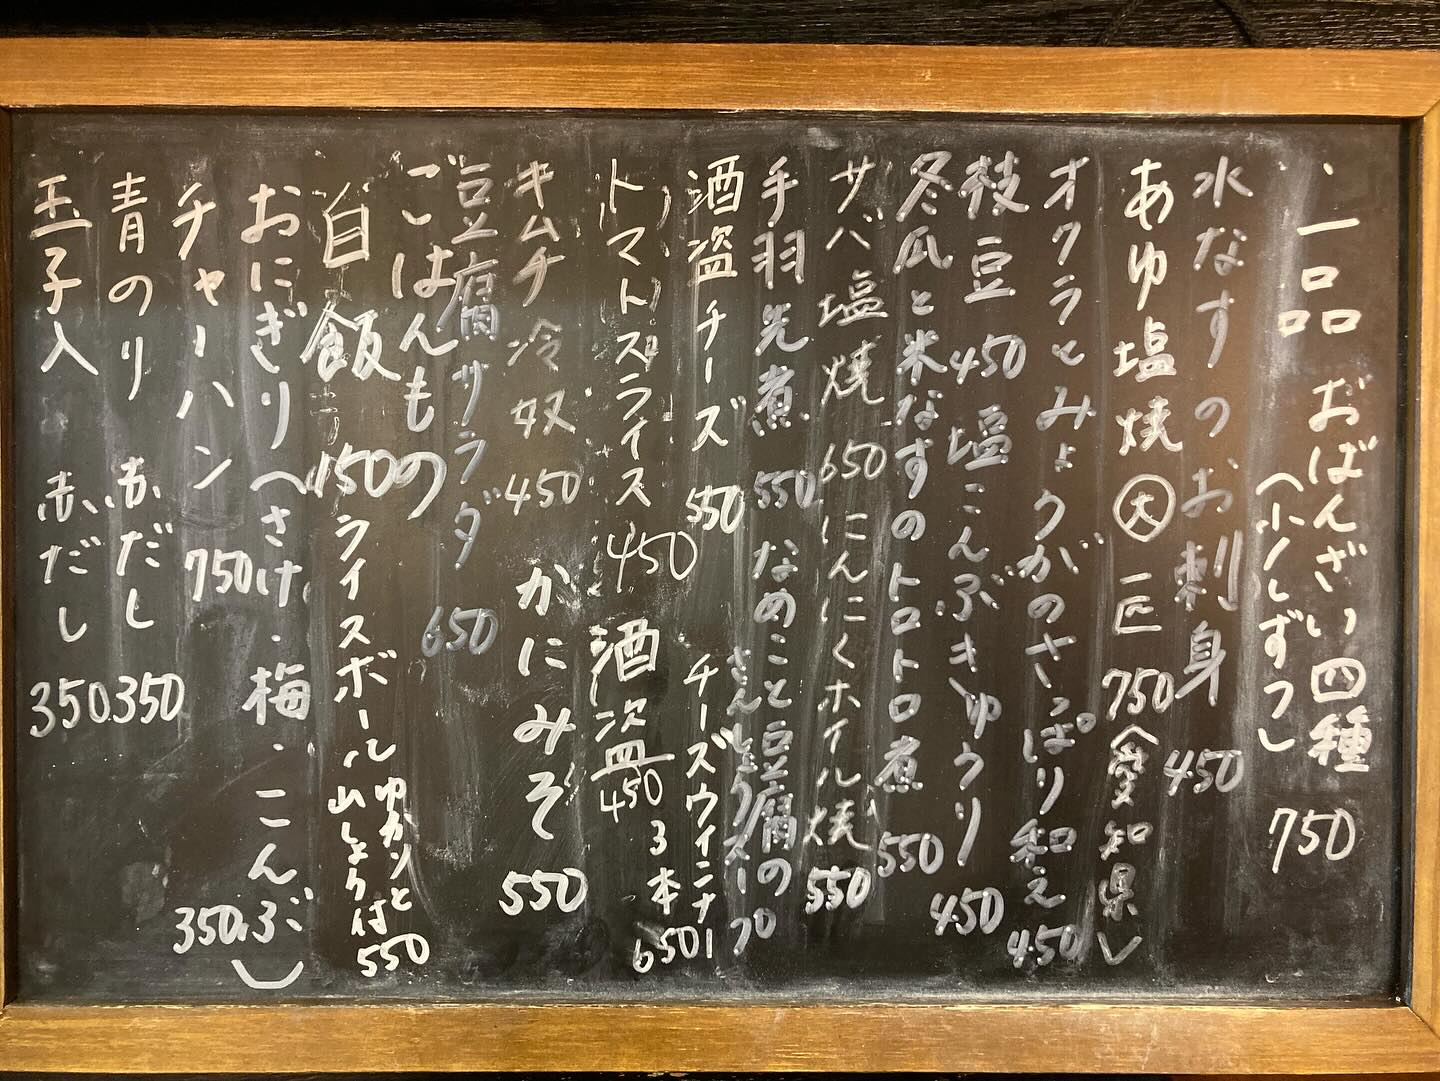 一品 おばんざい四種 750
(少しずつ)
水なすのお刺身 450
あゆ塩焼 大 一匹 750 (愛知県)
オクラとみょうがのさっぱり和え 450
枝豆 450 塩こんぶきゅうり 450
冬瓜と米なすのトロトロ煮 550
サバ塩焼 650 にんにくホイル焼 550
手羽先煮 550 なめこと豆腐の
さんとう スープ
酒盗チーズ 550 チーズウィンナー
3本 650
トマトスライス 450 酒盗 450
キムチ冷奴 450 かにみそ 550
豆腐サラダ 650
ごはんもの
白飯 150 ライスボール ゆかりと
山しょう付 550
おにぎり(さけ・梅・こんぶ) 350
チャーハン 750
青のり 赤だし 350
玉子入 赤だし 350